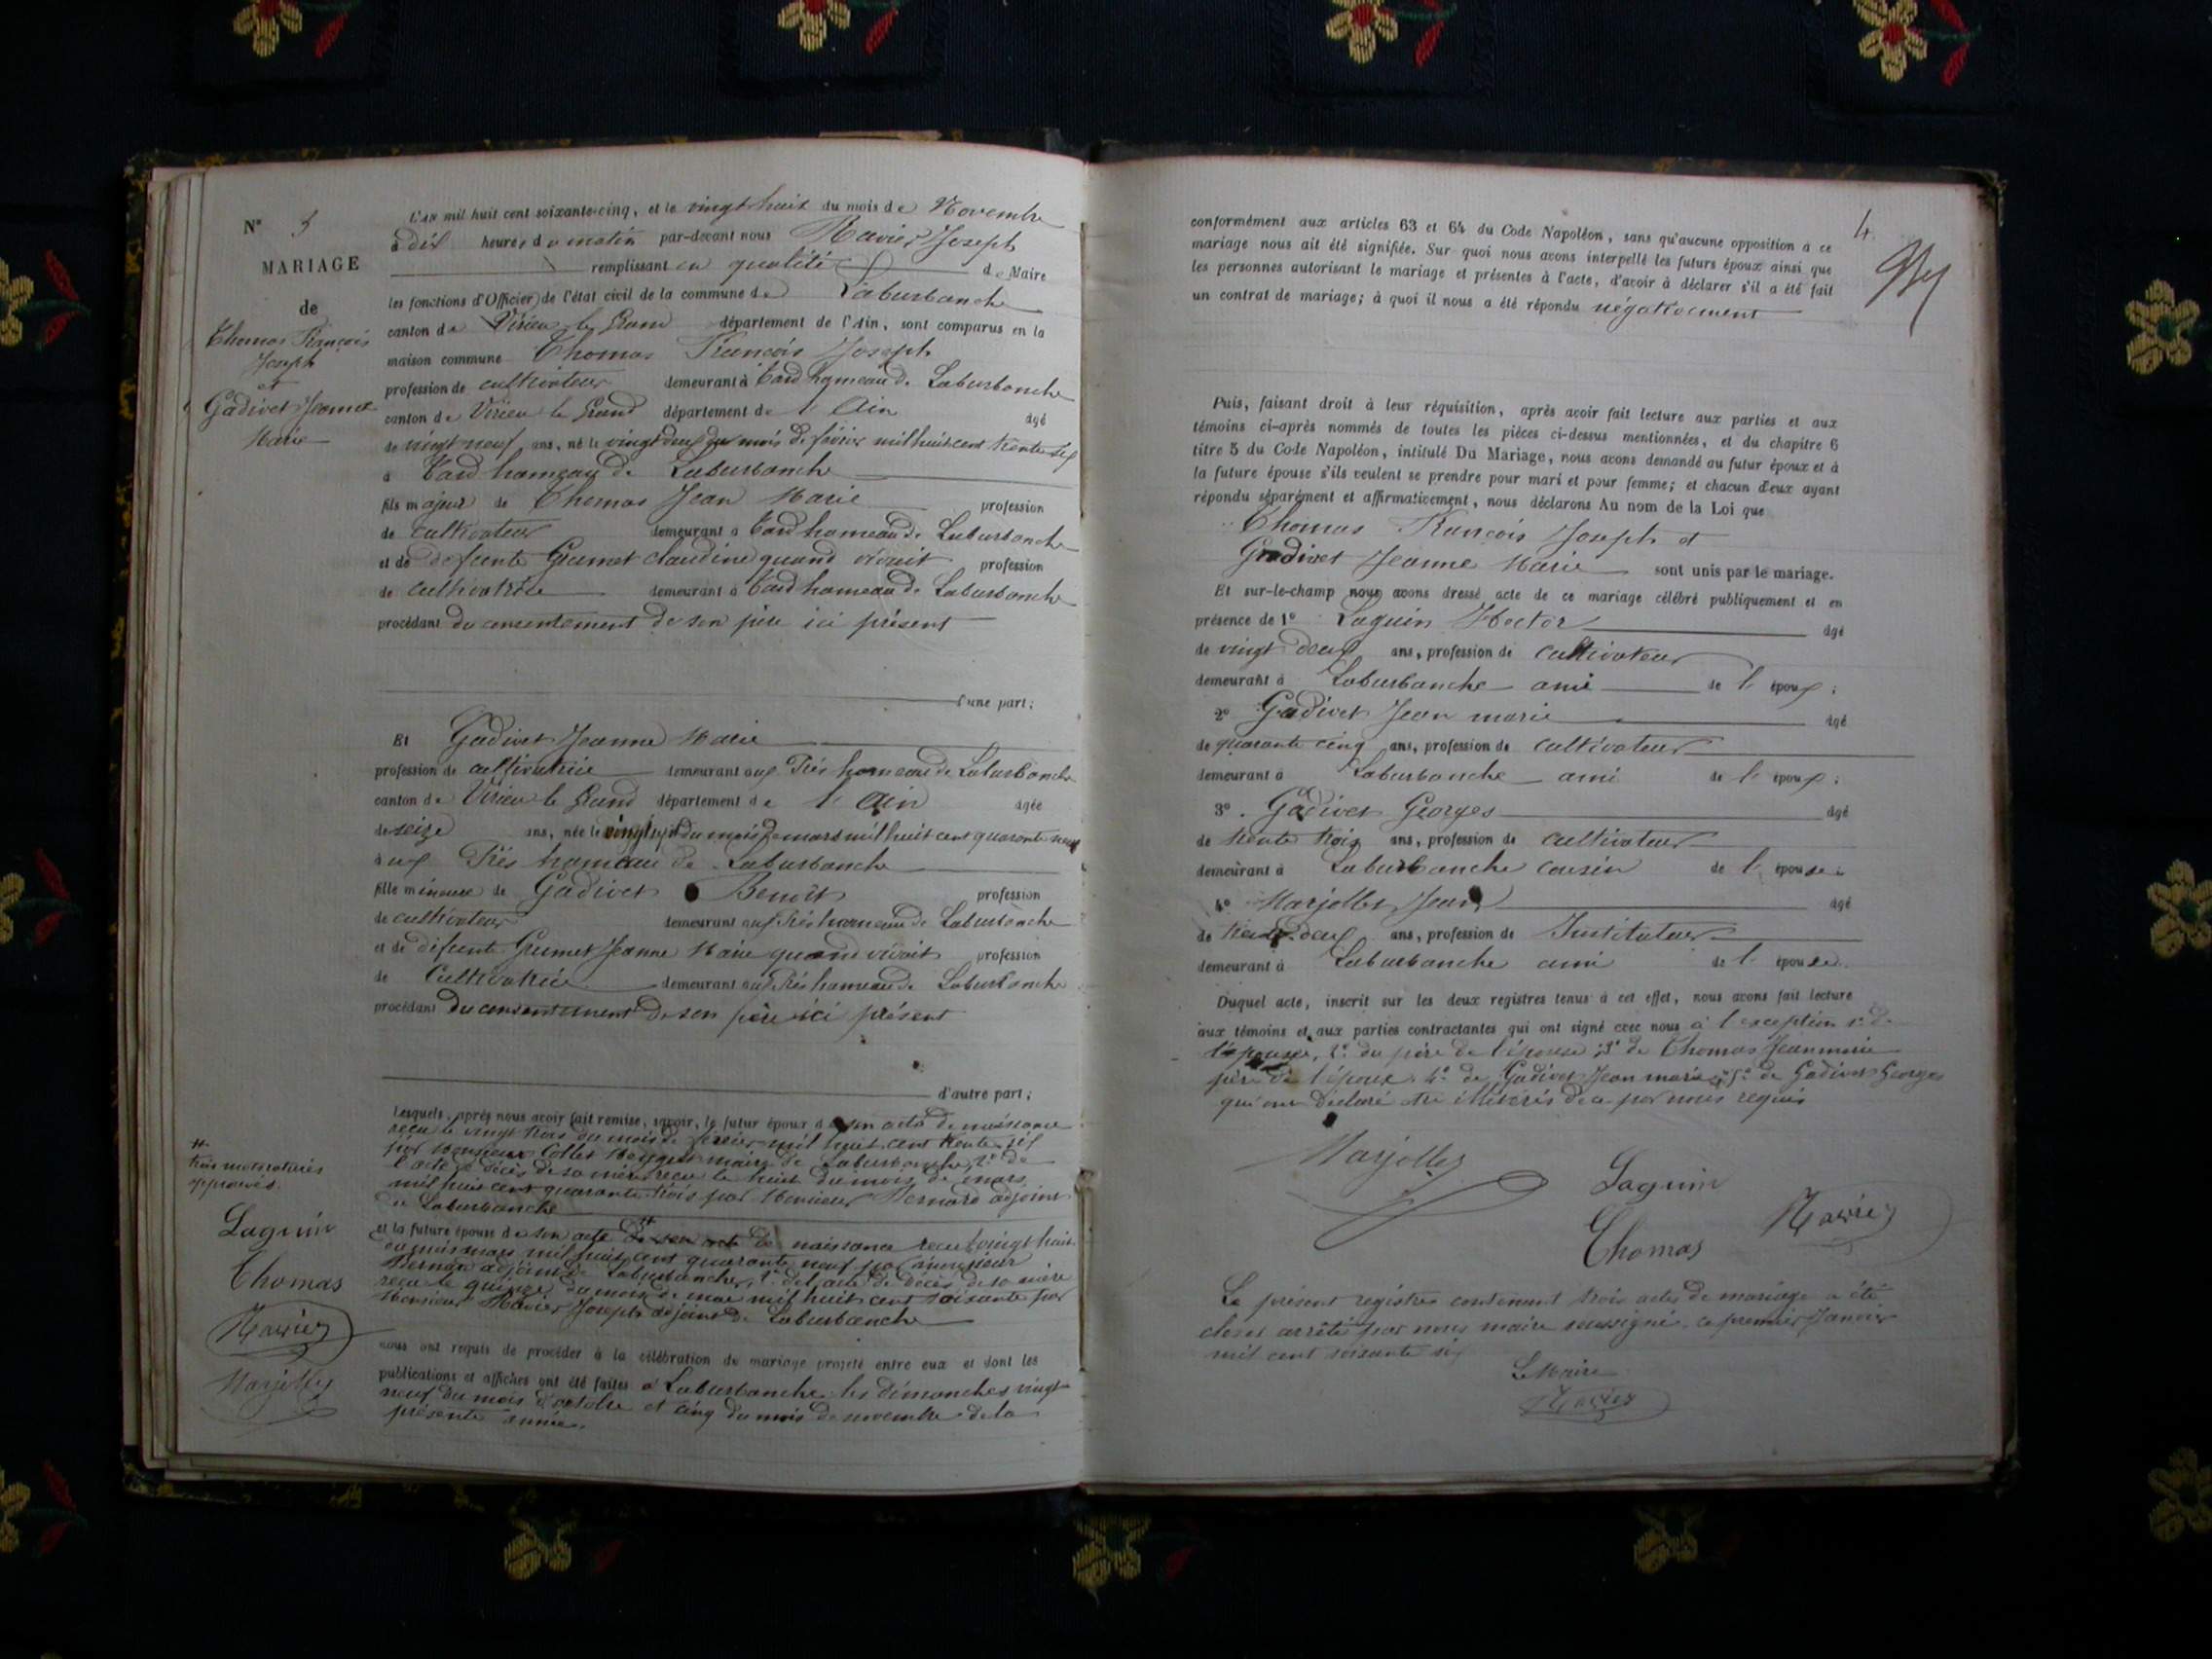 N° 3
MARIAGE
de
Thomas François
Joseph
et
Gadivet Jeanne
Marie
L'an mil huit cent soixante-cinq, et le vingt huit du mois de Novembre
à dix heures du matin par-devant nous Ravier Joseph
remplissant en qualité de Maire
les fonctions d'Officier de l'état civil de la commune de Laburbanche
canton de Virieu le Grand département de l'Ain, sont comparus en la
maison commune Thomas François Joseph
profession de cultivateur demeurant à hameau de Laburbanche
canton de Virieu le Grand département de l'Ain âgé
de vingt neuf ans, né le vingt deux du mois de février mil huit cent trente six
à hameau de Laburbanche
fils majeur de Thomas Jean Marie profession
de cultivateur demeurant à hameau de Laburbanche
et de défunte Grumet Claudine quand vivait profession
de cultivatrice demeurant à hameau de Laburbanche
procédant du consentement de son père ici présent
d'une part;
Et Gadivet Jeanne Marie
profession de cultivatrice demeurant aux hameau de Laburbanche
canton de Virieu le Grand département de l'Ain âgée
de seize ans, née le vingt sept du mois de mars mil huit cent quarante neuf
aux hameau de Laburbanche
fille mineure de Gadivet Benoît profession
de cultivateur demeurant aux hameau de Laburbanche
et de défunte Grumet Jeanne Marie quand vivait profession
de cultivatrice demeurant aux hameau de Laburbanche
procédant du consentement de son père ici présent
d'autre part;
Lesquels, après nous avoir fait remise, savoir, le futur époux de son acte de naissance
reçu le vingt trois du mois de février mil huit cent trente six
par Monsieur Collet maire de Laburbanche, 2° de
l'acte de décès de sa mère reçu le huit du mois de mars
mil huit cent quarante trois par Monsieur Bernard adjoint
de Laburbanche
et la future épouse de son acte de son acte de naissance reçu vingt huit
du mois mars mil huit cent quarante neuf par monsieur
Bernard adjoint de Laburbanche, 2° de l'acte de décès de sa mère
reçu le quinze du mois de mai mil huit cent soixante par
Monsieur Ravier Joseph adjoint de Laburbanche
nous ont requis de procéder à la célébration du mariage projeté entre eux et dont les
publications et affiches ont été faites à Laburbanche les dimanches vingt
neuf du mois d'octobre et cinq du mois de novembre de la
présente année.
trois mots raturés
approuvés.
Laguin
Thomas
Ravier
Marjollet
4
conformément aux articles 63 et 64 du Code Napoléon, sans qu'aucune opposition à ce
mariage nous ait été signifiée. Sur quoi nous avons interpellé les futurs époux ainsi que
les personnes autorisant le mariage et présentes à l'acte, d'avoir à déclarer s'il a été fait
un contrat de mariage; à quoi il nous a été répondu négativement
Puis, faisant droit à leur réquisition, après avoir fait lecture aux parties et aux
témoins ci-après nommés de toutes les pièces ci-dessus mentionnées, et du chapitre 6
titre 5 du Code Napoléon, intitulé Du Mariage, nous avons demandé au futur époux et à
la future épouse s'ils veulent se prendre pour mari et pour femme; et chacun d'eux ayant
répondu séparément et affirmativement, nous déclarons Au nom de la Loi que
Thomas François Joseph et
Gadivet Jeanne Marie sont unis par le mariage.
Et sur-le-champ nous avons dressé acte de ce mariage célébré publiquement et en
présence de 1° Laguin Hector âgé
de vingt deux ans, profession de cultivateur
demeurant à Laburbanche ami de l'époux;
2° Gadivet Jean marie âgé
de quarante cinq ans, profession de cultivateur
demeurant à Laburbanche ami de l'époux;
3° Gadivet Georges âgé
de trente trois ans, profession de cultivateur
demeurant à Laburbanche cousin de l'épouse;
4° Marjollet Jean âgé
de trente deux ans, profession de Instituteur
demeurant à Laburbanche ami de l'épouse.
Duquel acte, inscrit sur les deux registres tenus à cet effet, nous avons fait lecture
aux témoins et aux parties contractantes qui ont signé avec nous à l'exception 1° de
l'épouse, 2° du père de l'épouse; 3° de Thomas Jean marie
père de l'époux. 4° de Gadivet Jean marie; 5° de Gadivet Georges
qui ont déclaré être illitérés de ce par nous requis
Marjollet
Laguin
Thomas
Ravier
Le présent registre contenant trois actes de mariage a été
clos et arrêté par nous maire soussigné, ce premier Janvier
mil cent soixante six
Le Maire
Ravier